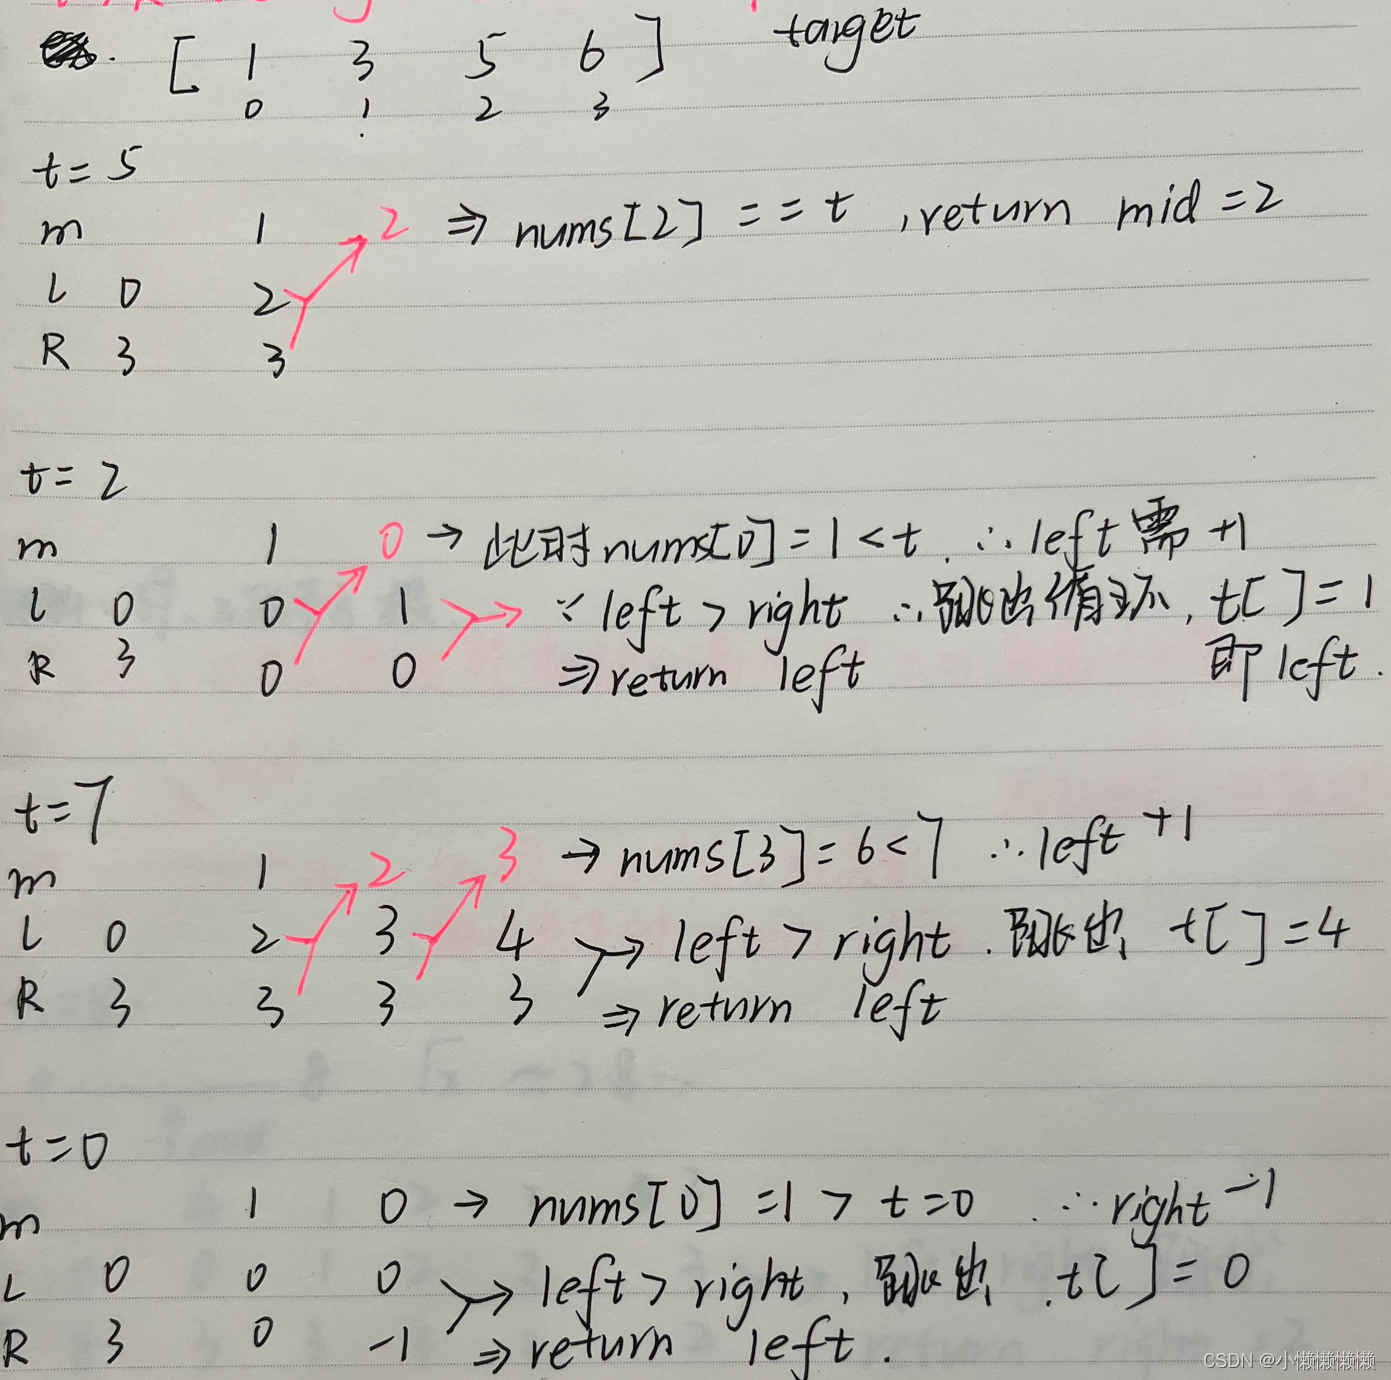 [ 1 3 5 6 ] target
0 1 2 3
t = 5
m 1 2 ⇒ nums[2] == t , return mid = 2
L 0 2
R 3 3
t = 2
m 1 0 → 此时nums[0] = 1 < t ∴ left 需 +1
L 0 0 1 ∵ left > right ∴ 跳出循环, t[ ] = 1
R 3 0 0 ⇒ return left 即 left.
t = 7
m 1 2 3 → nums[3] = 6 < 7 ∴ left +1
L 0 2 3 4 → left > right . 跳出, t[ ] = 4
R 3 3 3 3 ⇒ return left
t = 0
m 1 0 → nums[0] = 1 > t = 0 ∴ right -1
L 0 0 0 → left > right , 跳出, t[ ] = 0
R 3 0 -1 ⇒ return left .
CSDN @小懒懒懒懒